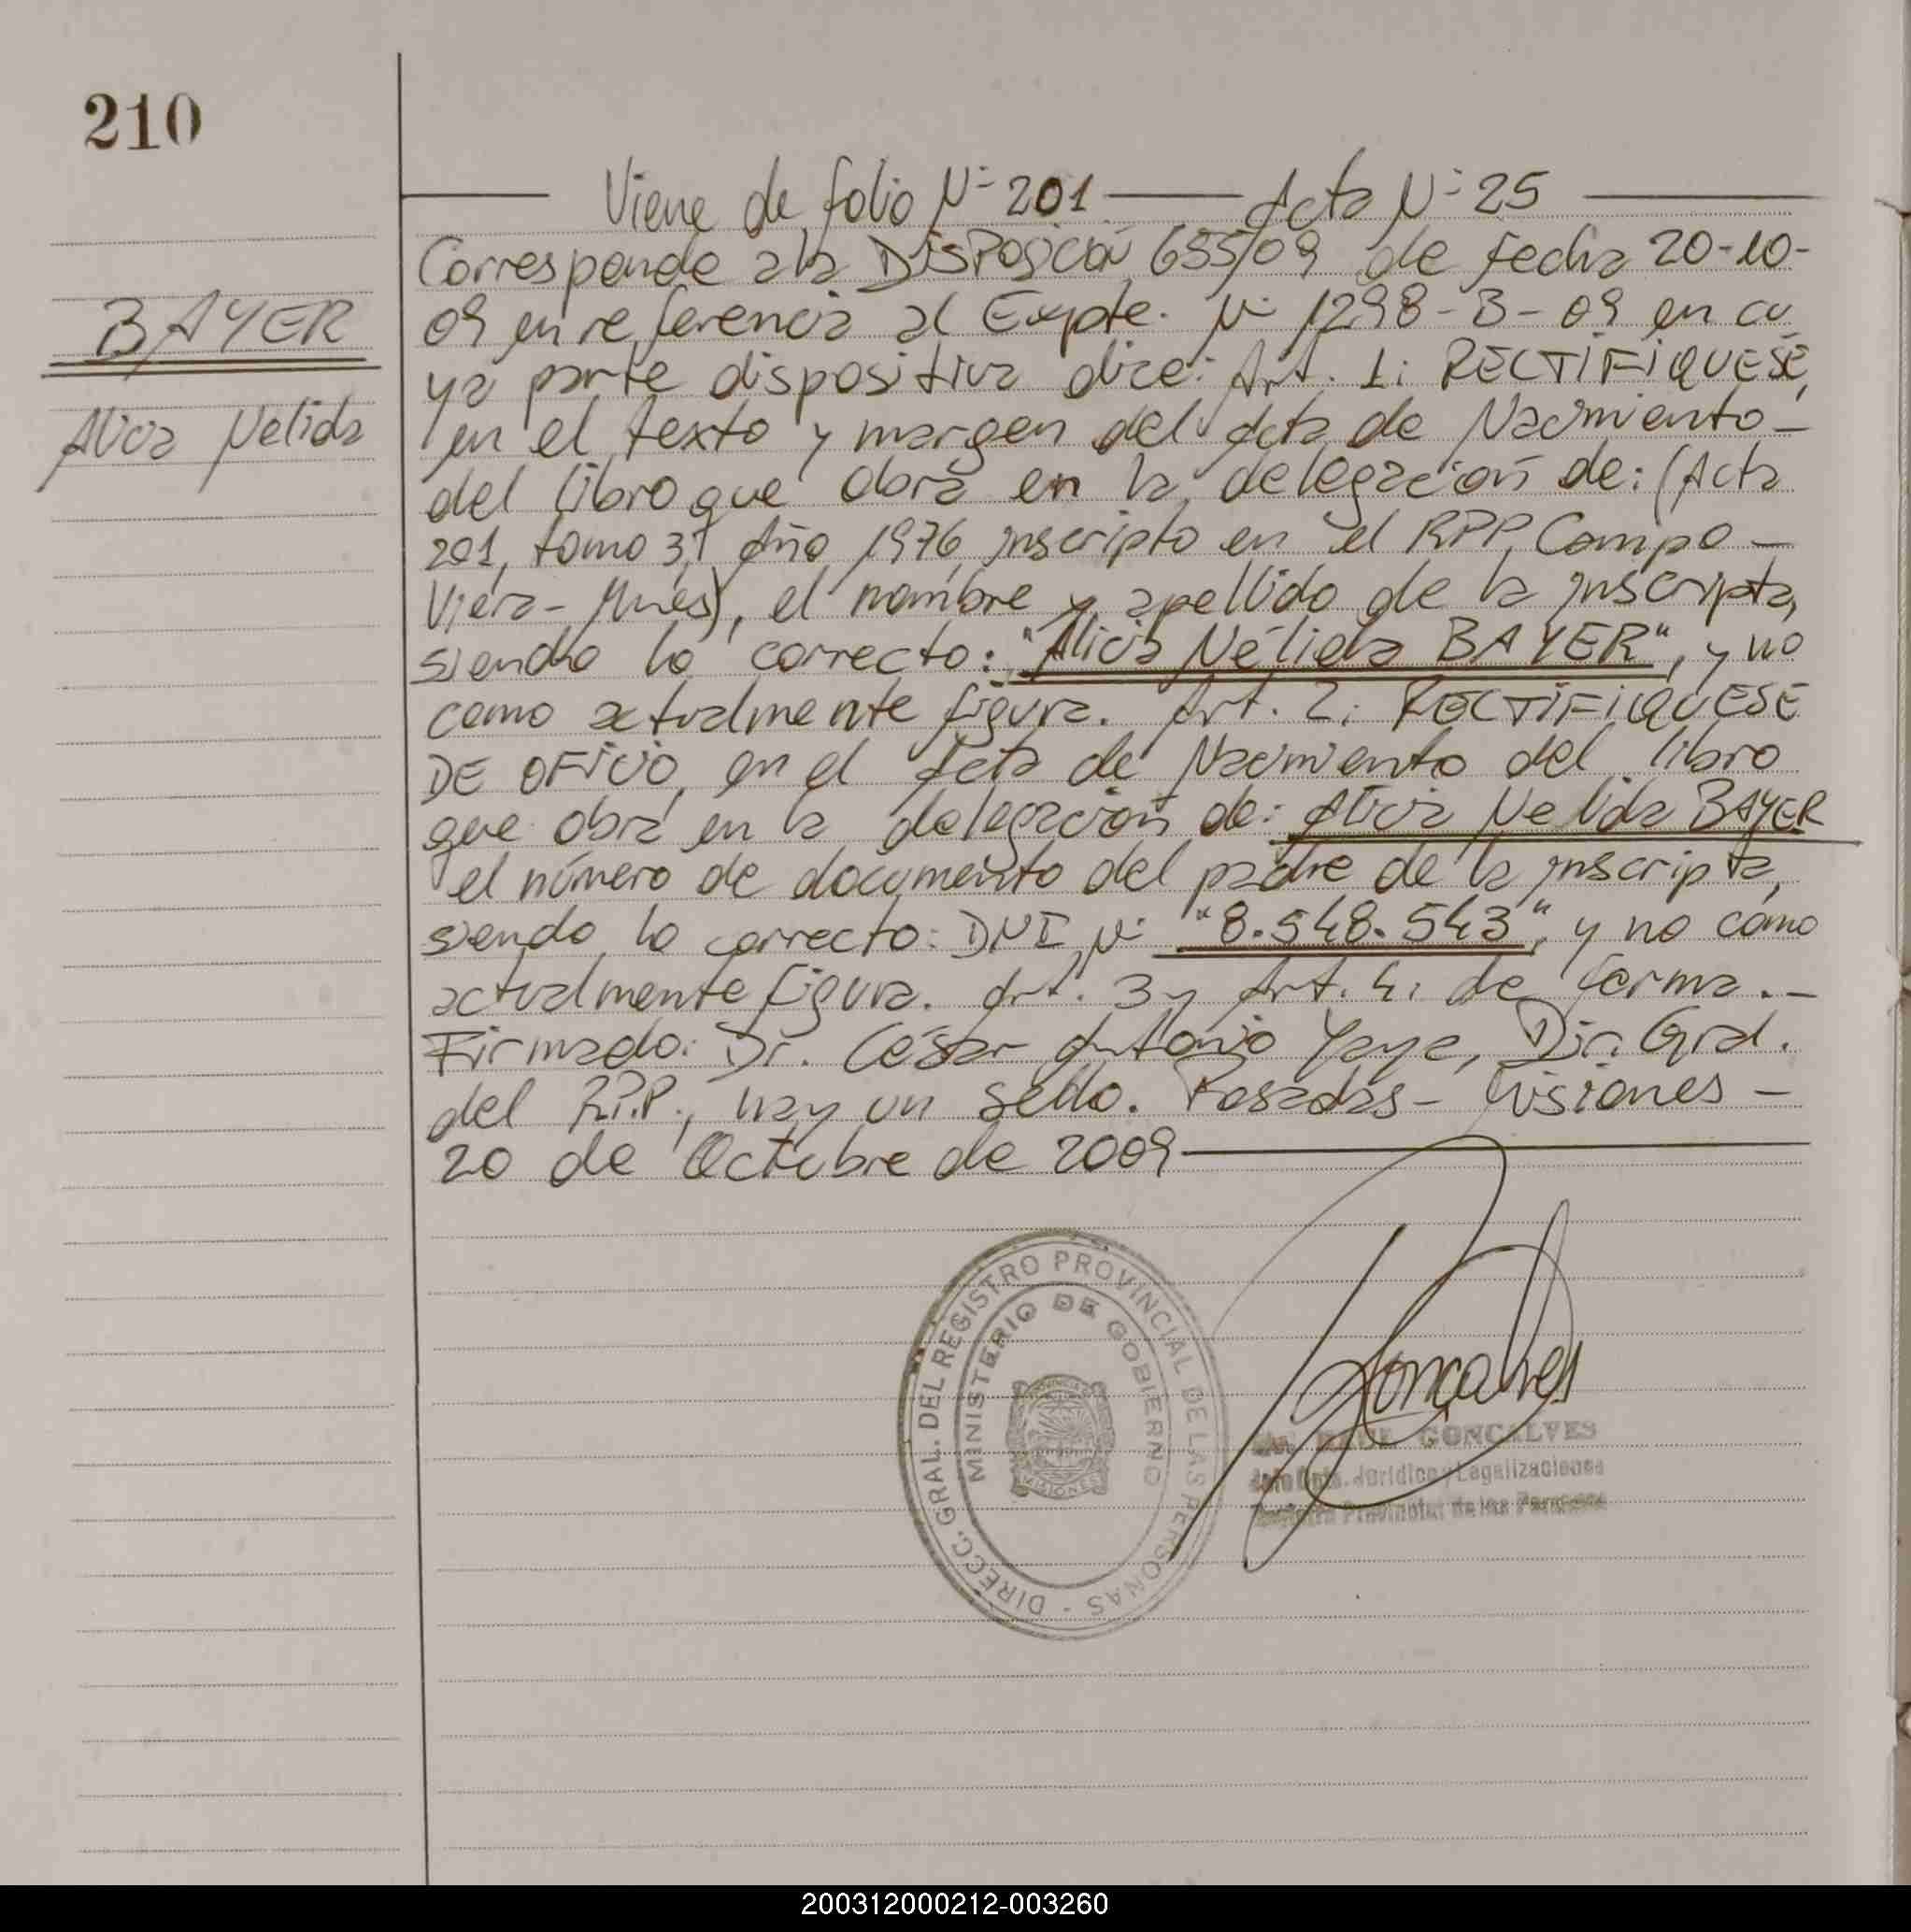 210
Viene de folio Nº 201 Acta Nº 25
Corresponde a la DISPOSICIÓN 655/09 de fecha 20-10-
09 en referencia al Expte. Nº 1298-B-09 en cu
ya parte dispositiva dice: Art. 1: RECTIFIQUESE,
en el texto y margen del Acta de Nacimiento -
del libro que obra en la delegación de: (Acta
201, tomo 3, Año 1976, inscripto en el RPP, Campo -
Viera - Mnes), el nombre y apellido de la inscripta,
siendo lo correcto: "Alicia Nélida BAYER", y no
como actualmente figura. Art. 2: RECTIFIQUESE
DE OFICIO, en el Acta de Nacimiento del libro
que obra en la delegación de: Alicia Nelida BAYER
el número de documento del padre de la inscripta,
siendo lo correcto: DNI Nº "8.548.543", y no como
actualmente figura. Art. 3 y Art. 4: de forma. -
Firmado: Dr. César Antonio Yaya, Dir. Gral.
del R.P.P., hay un sello. Posadas - Misiones -
20 de Octubre de 2009
BAYER
Alicia Nelida
DIRECC. GRAL. DEL REGISTRO PROVINCIAL DE LAS PERSONAS -
MINISTERIO DE GOBIERNO
PROVINCIA
MISIONES
Goncalves
RAUL GONCALVES
Jefe Dpto. Jurídico y Legalizaciones
Registro Provincial de las Personas
200312000212-003260